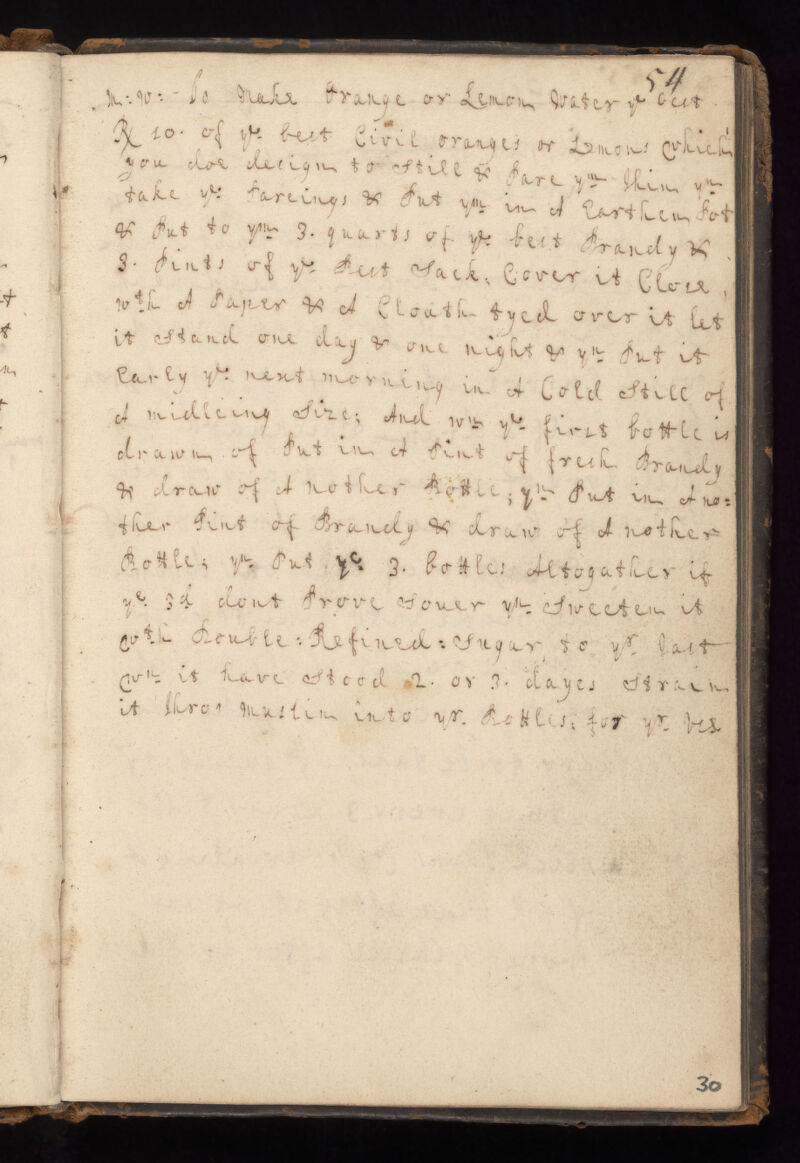 54
M:W:- To Make Orange or Lemon Water yᵉ best
℞ 10. of yᵉ best Civil oranges or Lemons which
you doe design to Still & Pare yᵐ thin yⁿ
take yᵉ Pareings & Put yᵐ in A Earthen Pot
& Put to yᵐ 3. quarts of yᵉ best Brandy &
3. Pints of yᵉ Best Sack, Cover it Close,
wᵗʰ A Paper & A Cloath tyed over it let
it Stand one day & one night & yⁿ Put it
Early yᵉ next morning in A Cold Still of
A midleing Size; And wⁿ yᵉ first bottle is
drawn of Put in A Pint of fresh Brandy
& draw of A nother Bottle; yⁿ Put in A no=
ther Pint of Brandy & draw of A nother
Bottle; yⁿ Put yᵉ 3. bottles Altogather if
yᵉ 3d dont Prove Souer yⁿ Sweeten it
wᵗʰ Double:Refined:Sugar, to yʳ tast
wⁿ it have Stood 2. or 3. dayes Strain
it thro' Muslin into yʳ Bottles, for yʳ Use
30